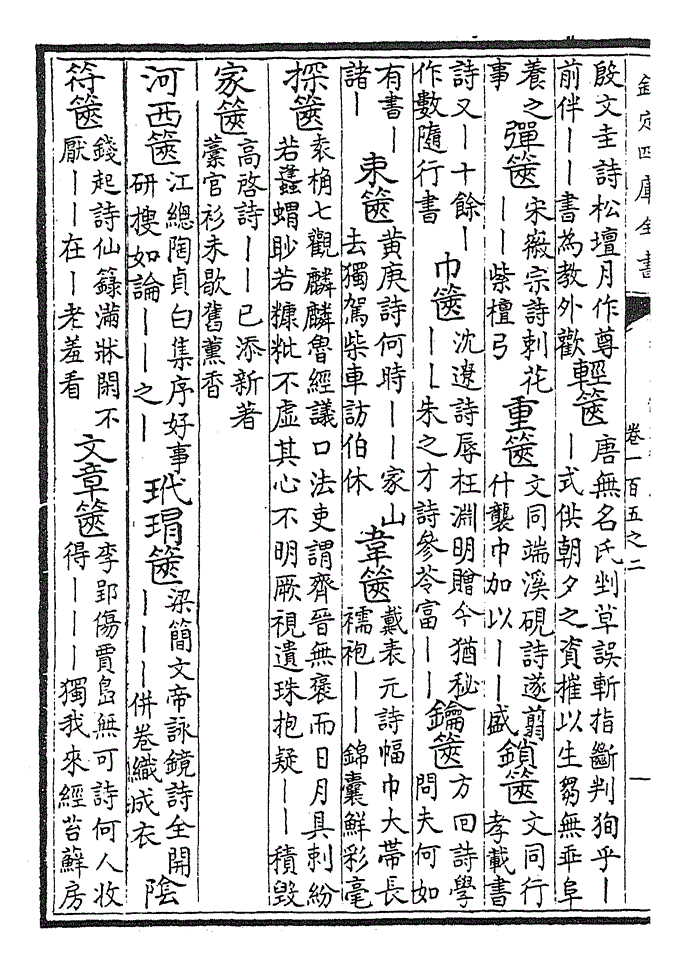 欽定四庫全書
卷一百五之二
一
殷文圭詩松壇月作尊
前伴丨丨書為教外歡
輕篋
唐無名氏剉草誤斬指斷判狥乎丨
丨式供朝夕之資摧以生芻無乖阜
養之
事
彈篋
宋徽宗詩刺花
丨丨紫檀弓
重篋
文同端溪硯詩遂翦
什襲巾加以丨丨盛
鎖篋
文同行
孝載書
詩又丨十餘丨
作數隨行書
巾篋
沈遼詩辱枉淵明贈今猶秘
丨丨朱之才詩參苓富丨丨
鑰篋
方回詩學
問夫何如
有書丨
諸丨
束篋
黃庚詩何時丨丨家山
去獨駕柴車訪伯休
韋篋
戴表元詩幅巾大帶長
襦袍丨丨錦囊鮮彩毫
探篋
袁桷七觀麟麟魯經議口法吏謂齊晉無褒而日月具刺紛
若蝟眇若糠粃不虛其心不明厥視遺珠抱疑丨丨積毀
家篋
高啓詩丨丨已添新著
藁官衫未歇舊薰香
河西篋
江總陶貞白集序好事
研搜如論丨丨之丨
玳瑁篋
梁簡文帝詠鏡詩全開
丨丨丨併卷織成衣
陰
符篋
錢起詩仙籙滿牀閑不
厭丨丨在丨老羞看
文章篋
李郢傷賈島無可詩何人收
得丨丨丨獨我來經苔蘚房